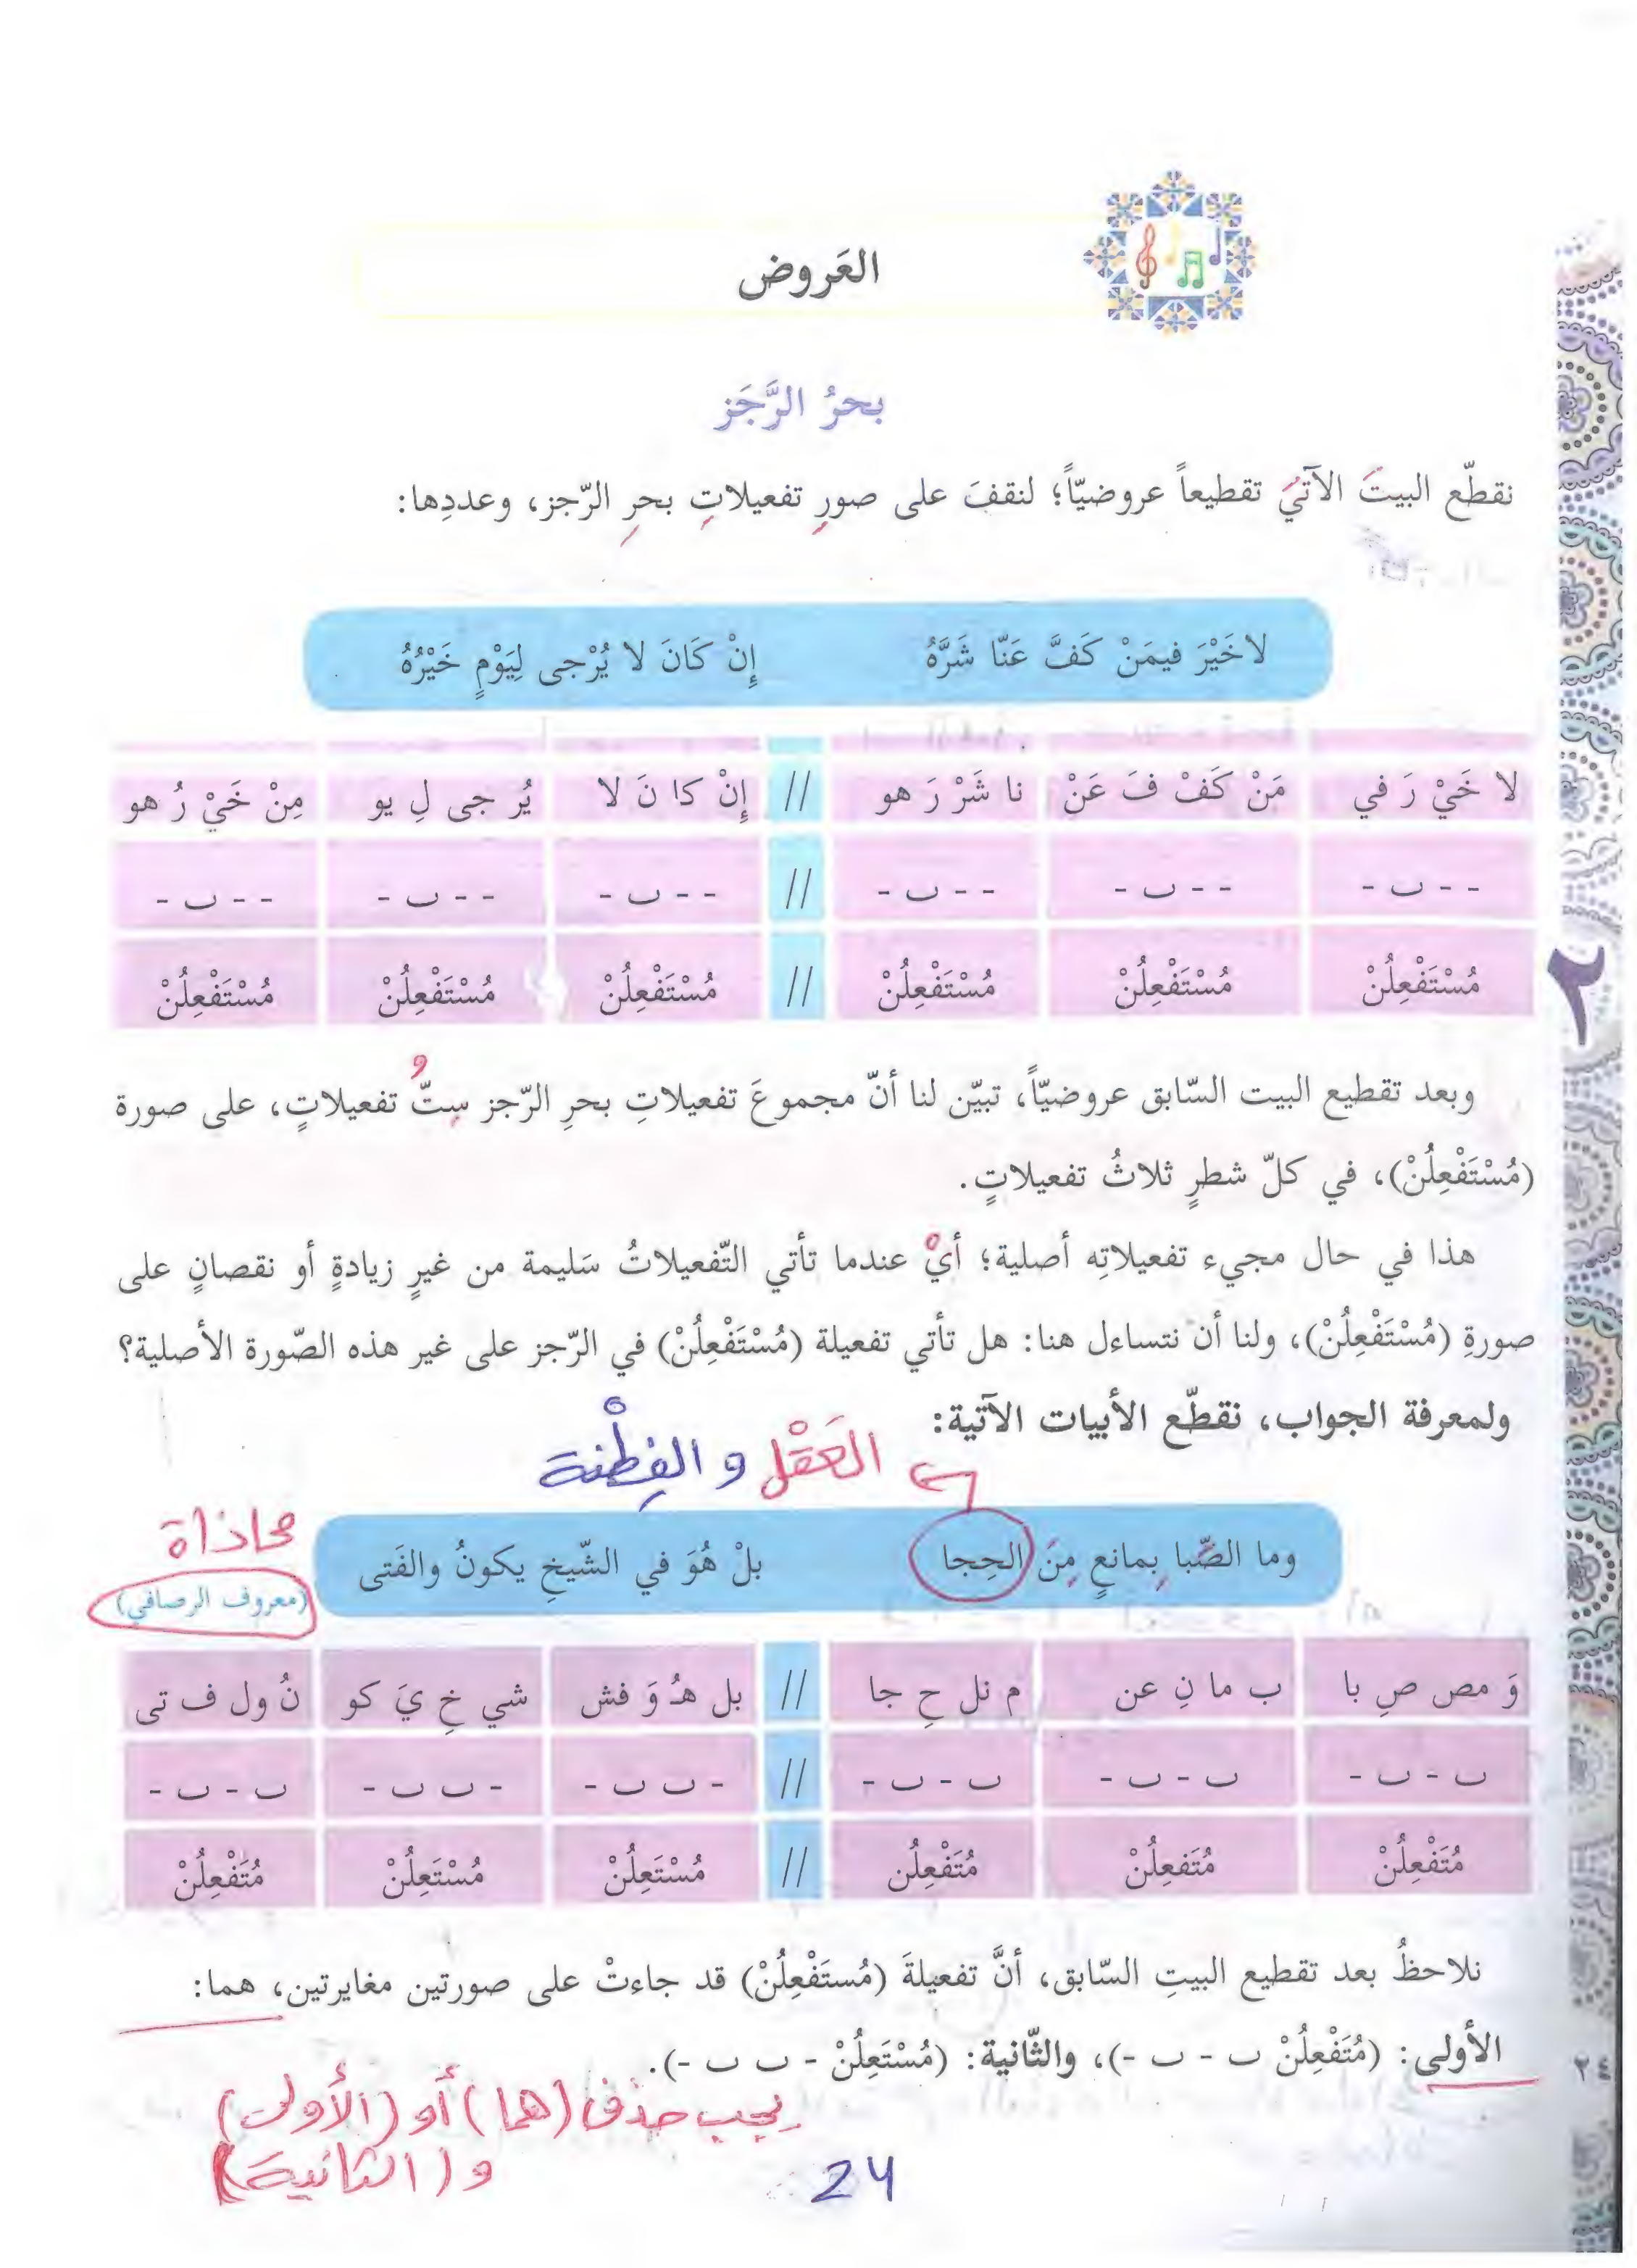 العَروض
بحرُ الرَّجَز
نقطّع البيتَ الآتيَ تقطيعاً عروضيّاً؛ لنقفَ على صورِ تفعيلاتِ بحرِ الرّجز، وعددِها:
لاخَيْرَ فيمَنْ كَفَّ عَنّا شَرَّهُ إِنْ كَانَ لا يُرْجى لِيَوْمٍ خَيْرُهُ
لا خَيْ رَ في مَنْ كَفْ فَ عَنْ نا شَرْ رَ هو // إِنْ كا نَ لا يُر جى لِ يو مِنْ خَيْ رُ هو
- - ب - - - ب - - - ب - // - - ب - - - ب - - - ب -
مُسْتَفْعِلُنْ مُسْتَفْعِلُنْ مُسْتَفْعِلُنْ // مُسْتَفْعِلُنْ مُسْتَفْعِلُنْ مُسْتَفْعِلُنْ
وبعد تقطيع البيت السّابق عروضيّاً، تبيّن لنا أنّ مجموعَ تفعيلاتِ بحرِ الرّجز سِتُّ تفعيلاتٍ، على صورة
(مُسْتَفْعِلُنْ)، في كلّ شطرٍ ثلاثُ تفعيلاتٍ.
هذا في حال مجيء تفعيلاتِه أصلية؛ أيْ عندما تأتي التّفعيلاتُ سَليمة من غيرِ زيادةٍ أو نقصانٍ على
صورةِ (مُسْتَفْعِلُنْ)، ولنا أن نتساءل هنا: هل تأتي تفعيلة (مُسْتَفْعِلُنْ) في الرّجز على غير هذه الصّورة الأصلية؟
ولمعرفة الجواب، نقطّع الأبيات الآتية:
العَقْل و الفِطْنة
وما الصِّبا بِمانعٍ مِنَ الحِجا بلْ هُوَ في الشّيخِ يكونُ والفَتى
محاذاة
(معروف الرصافي)
وَ مص صِ با ب ما نِ عن م نل حِ جا // بل هـُ وَ فش شي خِ يَ كو نُ ول ف تى
ب - ب - ب - ب - ب - ب - // - ب ب - - ب ب - ب - ب -
مُتَفْعِلُنْ مُتَفعِلُنْ مُتَفْعِلُن // مُسْتَعِلُنْ مُسْتَعِلُنْ مُتَفْعِلُنْ
نلاحظُ بعد تقطيع البيتِ السّابق، أنَّ تفعيلةَ (مُستَفْعِلُنْ) قد جاءتْ على صورتين مغايرتين، هما:
الأولى: (مُتَفْعِلُنْ ب - ب -)، والثّانية: (مُسْتَعِلُنْ - ب ب -).
يجب حذف (هما) أو (الأولى)
و (الثانية)
24
٢
٢٤